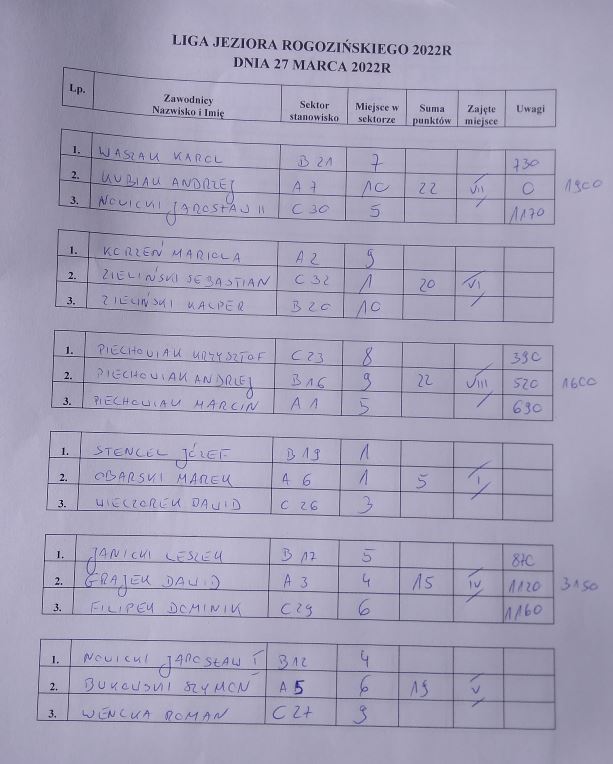 LIGA JEZIORA ROGOZIŃSKIEGO 2022R
DNIA 27 MARCA 2022R
Lp. Zawodnicy Nazwisko i Imię Sektor stanowisko Miejsce w sektorze Suma punktów Zajęte miejsce Uwagi
1. WASZAK KAROL B 21 7 730
2. KUBIAK ANDRZEJ A 7 10 22 VII 0 1900
3. NOWICKI JAROSŁAW II C 30 5 1170
1. KORZEŃ MARIOLA A 2 9
2. ZIELIŃSKI SEBASTIAN C 32 1 20 VI
3. ZIELIŃSKI KACPER B 20 10
1. PIECHOWIAK KRZYSZTOF C 23 8 390
2. PIECHOWIAK ANDRZEJ B 16 9 22 VIII 520 1600
3. PIECHOWIAK MARCIN A 1 5 690
1. STENCEL JÓZEF B 19 1
2. OBARSKI MAREK A 6 1 5 I
3. WIECZOREK DAWID C 26 3
1. JANICKI LESZEK B 17 5 870
2. GRAJEK DAWID A 3 4 15 IV 1120 3150
3. FILIPEK DOMINIK C 29 6 1160
1. NOWICKI JAROSŁAW I B 12 4
2. BUKOWSKI SZYMON A 5 6 19 V
3. WENCKA ROMAN C 27 9